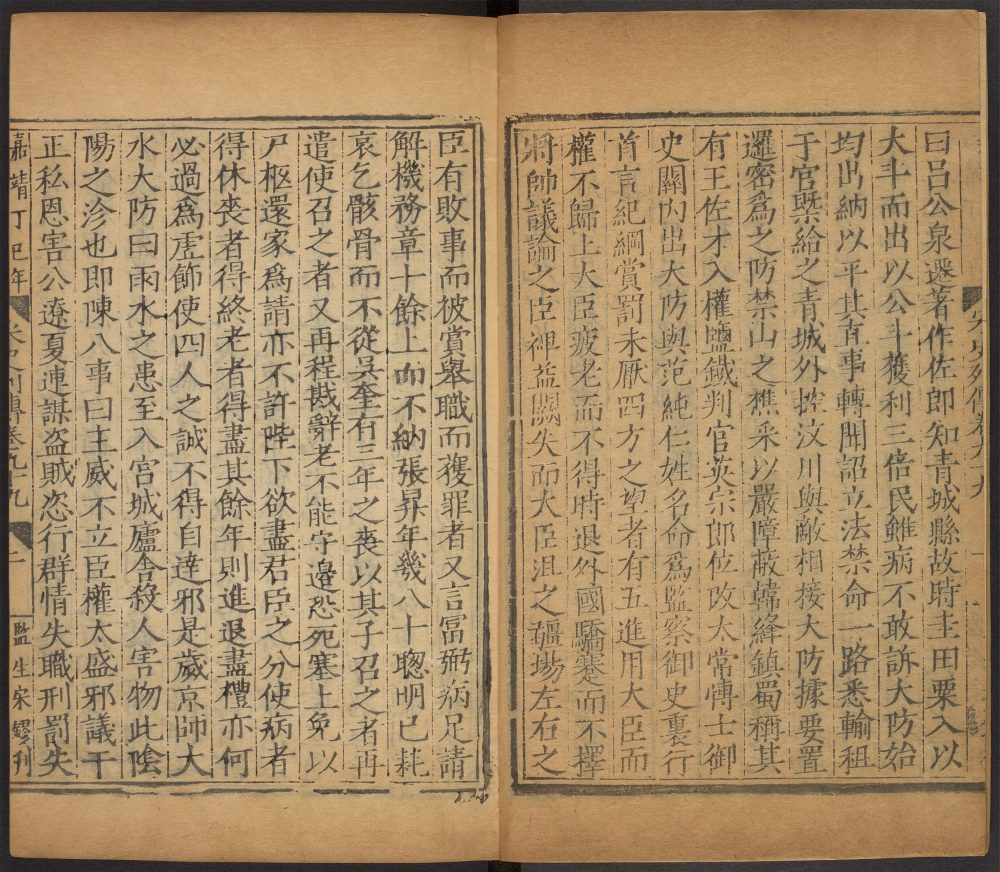 曰呂公泉遷著作佐郎知青城縣故時圭田粟入以
大斗而出以公斗獲利三倍民雖病不敢訴大防始
均出納以平其直事轉聞詔立法禁命一路悉輸租
于官槩給之青城外控汶川與敵相接大防據要置
邏密爲之防禁山之樵采以嚴障蔽韓絳鎮蜀稱其
有王佐才入權鹽鐵判官英宗即位改太常博士御
史闕內出大防與范純仁姓名命爲監察御史裏行
首言紀綱賞罰未厭四方之望者有五進用大臣而
權不歸上大臣疲老而不得時退外國驕蹇而不擇
將帥議論之臣裨益闕失而大臣沮之疆埸左右之
臣有敗事而被賞舉職而獲罪者又言富弼病足請
解機務章十餘上而不納張昪年幾八十聰明已耗
哀乞骸骨而不從吳奎有三年之喪以其子召之者再
遣使召之者又再程戡辭老不能守邊恐死塞上免以
尸柩還家爲請亦不許陛下欲盡君臣之分使病者
得休喪者得終老者得盡其餘年則進退盡禮亦何
必過爲虛飾使四人之誠不得自達邪是歲京師大
水大防曰雨水之患至入宮城廬舍殺人害物此陰
陽之沴也即陳八事曰主威不立臣權太盛邪議干
正私恩害公遼夏連謀盜賊恣行群情失職刑罰失
嘉靖丁巳年 宋史列傳卷九十九 一 監生宋鏐刊